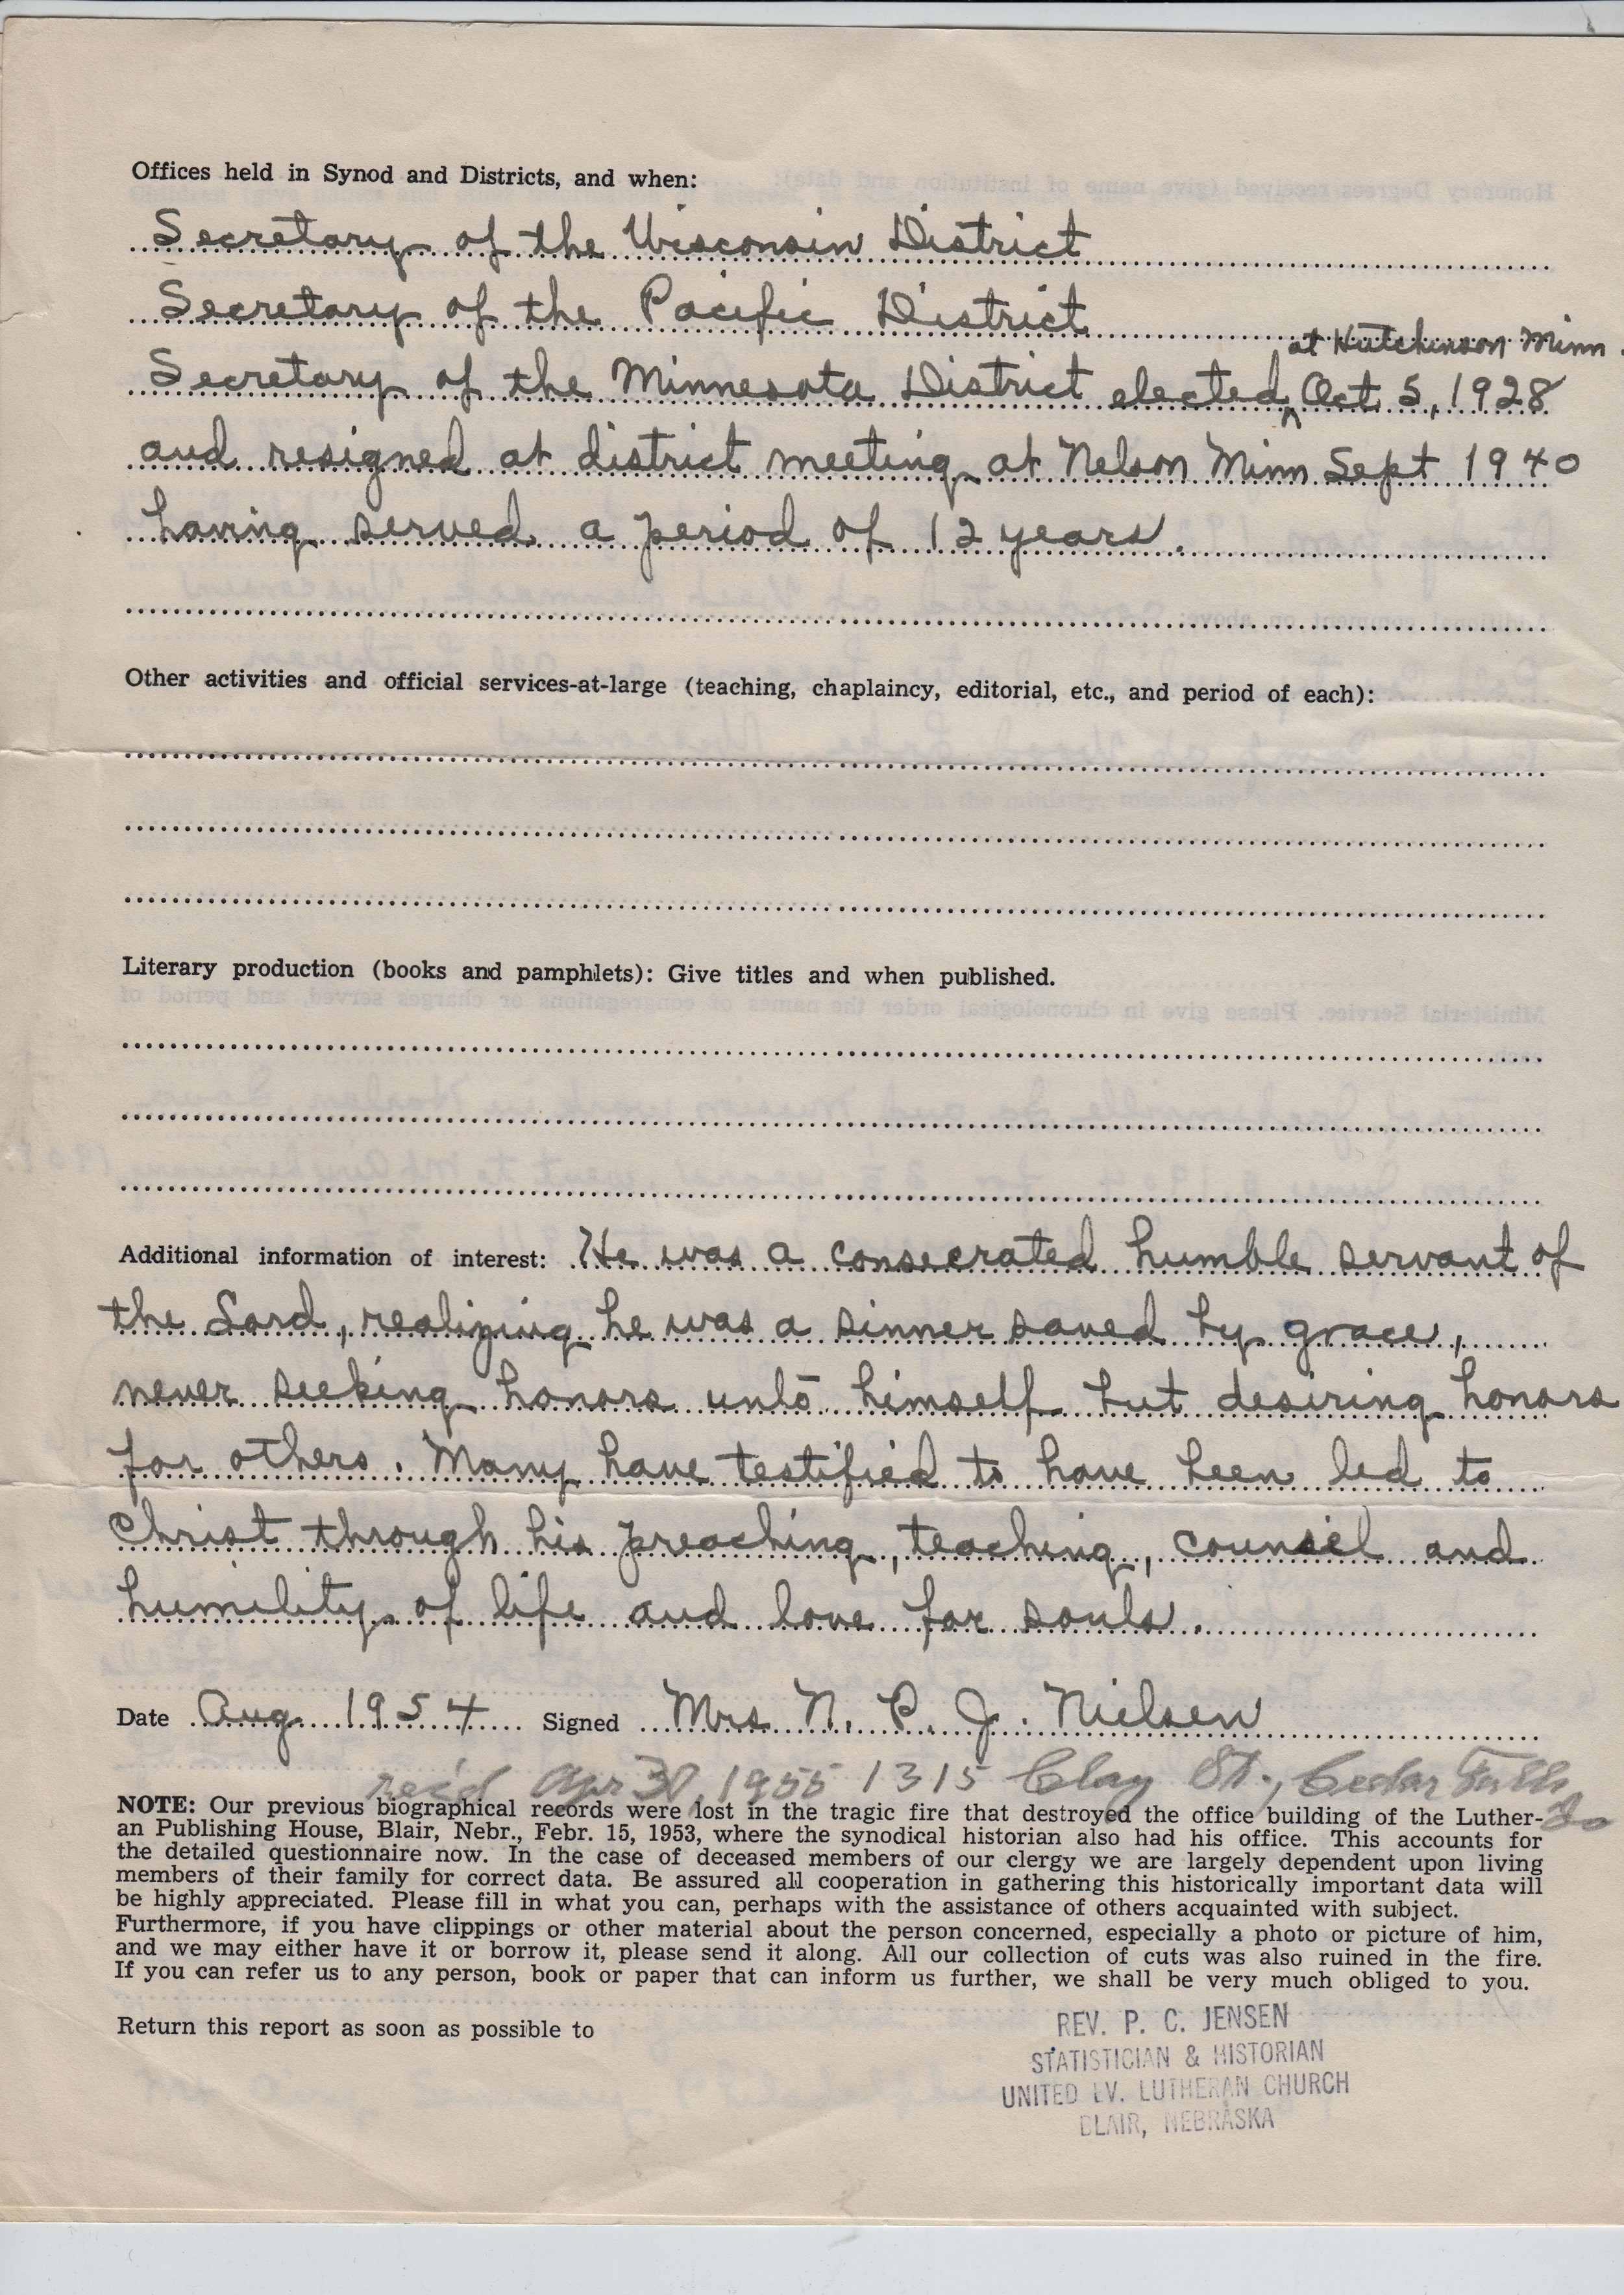 Offices held in Synod and Districts, and when:
Secretary of the Wisconsin District
Secretary of the Pacific District
at Hutchinson Minn.
Secretary of the Minnesota District elected ^ Oct 5, 1928
and resigned at district meeting at Nelson Minn Sept 1940
having served a period of 12 years.
Other activities and official services-at-large (teaching, chaplaincy, editorial, etc., and period of each):
Literary production (books and pamphlets): Give titles and when published.
Additional information of interest: He was a consecrated humble servant of
the Lord, realizing he was a sinner saved by grace,
never seeking honors unto himself but desiring honors
for others. Many have testified to have been led to
Christ through his preaching, teaching, counsel and
humility of life and love for souls.
Date Aug 1954 Signed Mrs N. P. J. Nielsen
rec'd Apr 30, 1955 1315 Clay St., Cedar Falls
NOTE: Our previous biographical records were lost in the tragic fire that destroyed the office building of the Luther- Io
an Publishing House, Blair, Nebr., Febr. 15, 1953, where the synodical historian also had his office. This accounts for
the detailed questionnaire now. In the case of deceased members of our clergy we are largely dependent upon living
members of their family for correct data. Be assured all cooperation in gathering this historically important data will
be highly appreciated. Please fill in what you can, perhaps with the assistance of others acquainted with subject.
Furthermore, if you have clippings or other material about the person concerned, especially a photo or picture of him,
and we may either have it or borrow it, please send it along. All our collection of cuts was also ruined in the fire.
If you can refer us to any person, book or paper that can inform us further, we shall be very much obliged to you.
Return this report as soon as possible to
REV. P. C. JENSEN
STATISTICIAN & HISTORIAN
UNITED EV. LUTHERAN CHURCH
BLAIR, NEBRASKA